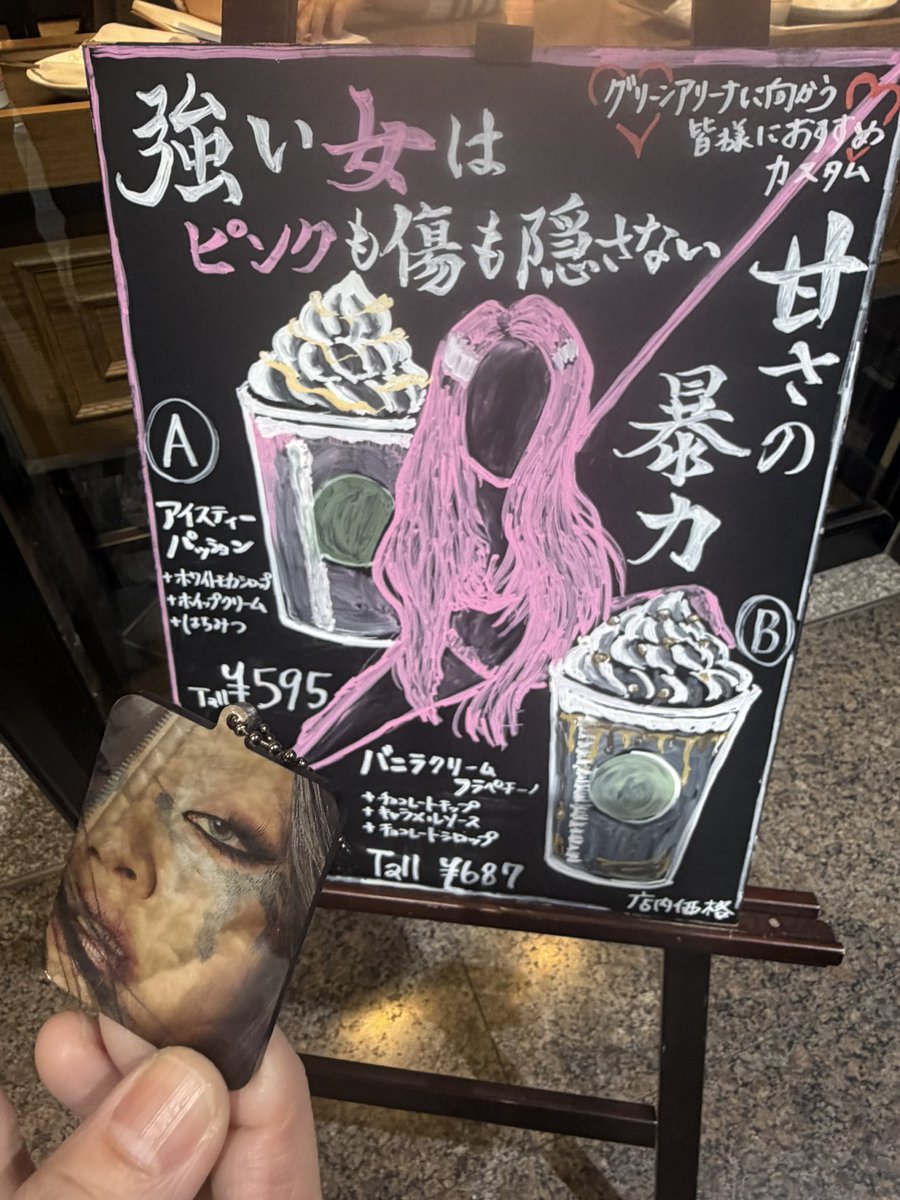 強い女は
ピンクも傷も隠さない
グリーンアリーナに向かう
皆様におすすめ
カスタム
甘さの
暴力
A
アイスティー
パッション
+ホワイトモカシロップ
+ホイップクリーム
+はちみつ
Tall ¥595
B
バニラクリーム
フラペチーノ
+チョコレートチップ
+キャラメルソース
+チョコレートシロップ
Tall ¥687
店内価格